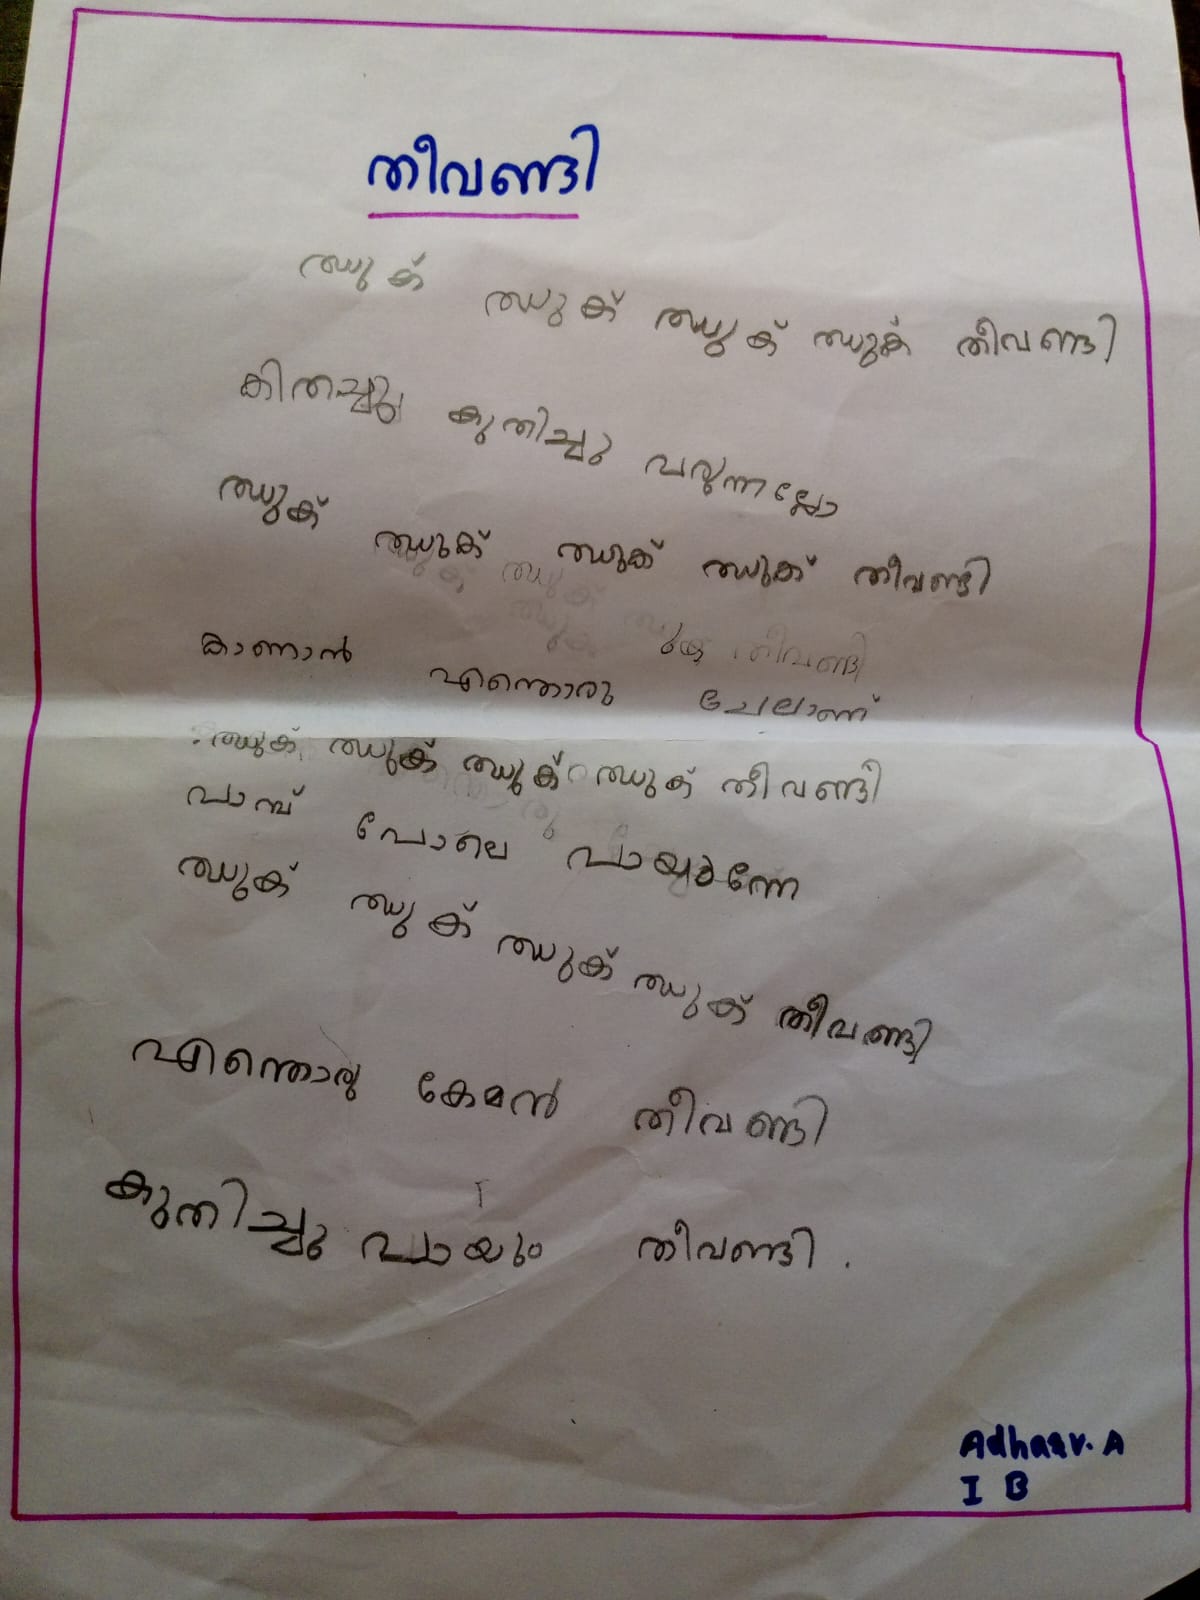 തീവണ്ടി
ഝുക് ഝുക് ഝുക് ഝുക് തീവണ്ടി
കിതച്ചു കുതിച്ചു വരുന്നല്ലോ
ഝുക് ഝുക് ഝുക് ഝുക് തീവണ്ടി
കാണാൻ എന്തൊരു ചേലാണ്
ഝുക് ഝുക് ഝുക് ഝുക് തീവണ്ടി
പാമ്പ് പോലെ പായുന്നേ
ഝുക് ഝുക് ഝുക് ഝുക് തീവണ്ടി
എന്തൊരു കേമൻ തീവണ്ടി
കുതിച്ചു പായും തീവണ്ടി.
A
I B